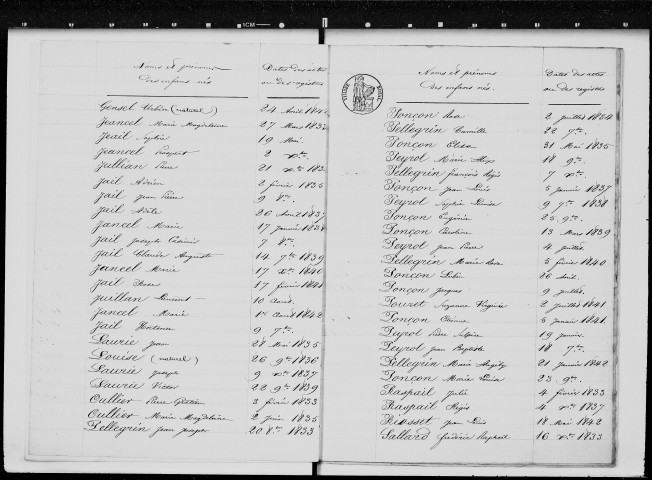 Noms et prénoms
des enfans nés
Dates des actes
ou des registres
Gensel Urbin (naturel) 24 Avril 1842
Jeancel Marie Magdeleine 27 Mars 183
Jeail Sophie 19 Mai
Jeancel 2 Xbre
Jullian Pierre 21 Xbre 183
Jail Adrien 2 février 1835
Jail Jean Pierre 9 8bre
Jail Adèle 26 1837
Jancel Marie 17 Janvier 1838
Jail Joseph Casimir 7 8bre
Jail Claude Auguste 14 7bre 1839
Jancel Marie 17 Xbre 1840
Jail Rosa 17 février 1841
Juillan Vincent 10 Avril
Jancel Marie 1er Avril 1842
Jail Hortense 9 7bre
Laurie Jean 28 Mai 1835
Louise (naturel) 26 9bre 1836
Laurie Joseph 9 Xbre 1837
Laurie Victor 22 9bre 1839
Oullier Pierre 3 février 1833
Oullier Marie Magdeleine 2 Juin 1835
Pellegrin Jean Joseph 20 8bre 1833
Noms et prénoms
des enfans nés
Dates des actes
ou des registres
TIMBRE ROYAL
Ponçon Rosa 2 Juillet 1834
Pellegrin Camille 22 7bre
Ponçon Elisa 31 Mai 1835
Peyrol Marie 18 9bre
Pellegrin françois Régis 7 Xbre
Ponçon Jean Louis 5 Janvier 1837
Peyrol Sophie Louise 9 7bre 1838
Ponçon Eugénie 25 9bre
Ponçon Caroline 13 Mars 1839
Peyrol Jean Pierre 4 Juillet
Pellegrin Marie Rosa 5 février 1840
Ponçon 26 Avril
Ponçon Jacques 9 Juillet
Pouzet Suzanne Virginie 2 Juillet 1841
Ponçon Etienne 5 Janvier 1841
Peyrol Pierre 19 Janvier
Peyrol Jean Baptiste 18 7bre
Pellegrin Marie 21 Janvier 1842
Ponçon Marie Louise 23 9bre
Raspail Julie 4 février 1833
Raspail Régis 4 Xbre 1837
Riosset Jean Louis 18 Mai 1842
Sallard frédéric Raphael 16 Xbre 1833